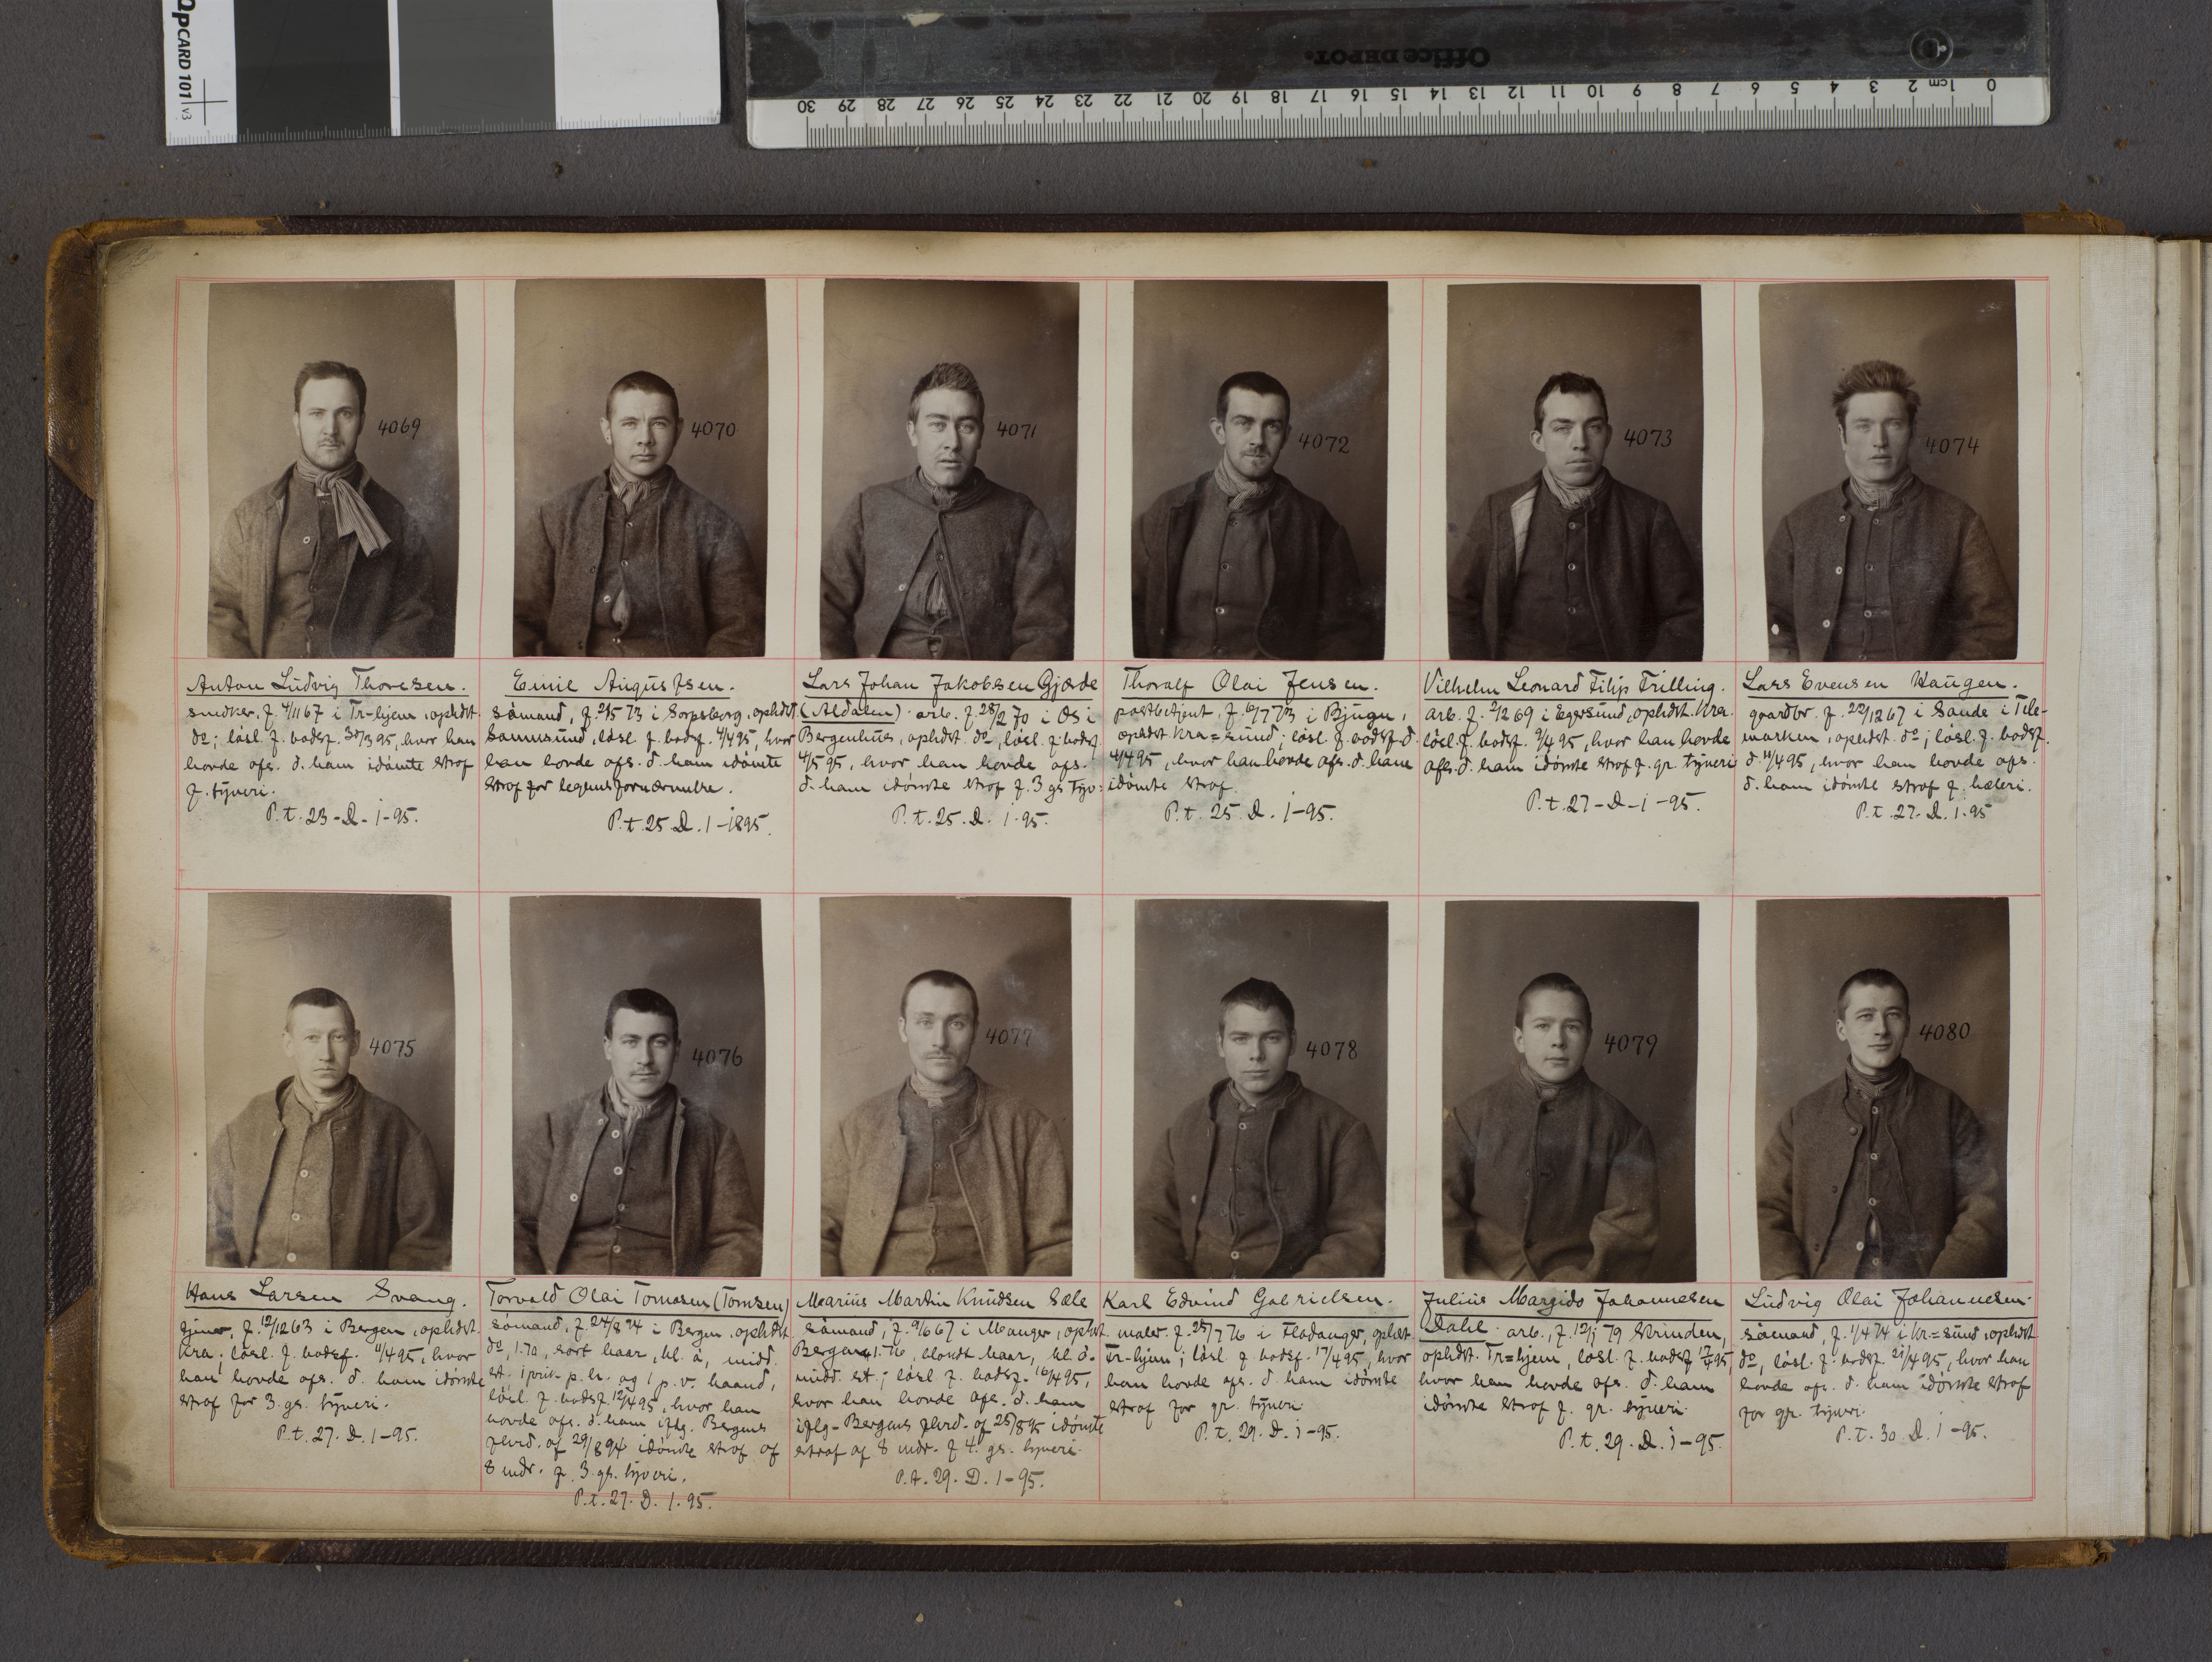 QPCARD 101 v3
Office DEPOT
0 1cm 2 3 4 5 6 7 8 9 10 11 12 13 14 15 16 17 18 19 20 21 22 23 24 25 26 27 28 29 30
4069
4070
4071
4072
4073
4074
Anton Ludvig Thoresen.
snedker, f. 4/11 67 i Tr-hjem, ophdst.
do; løsl. f. bodsf. 30/3 95, hvor han
havde afs. d. ham idømte straf
f. tyveri.
P.t. 23-D-1-95.
Emil Augustsen.
sømand, f. 73 i Sarpsborg, ophdst
løsl. f. bodsf. 4/4 95, hvor
han havde afs. d. ham idømte
straf for legemsfornærmelse.
P.t. 25. D. 1-1895.
Lars Johan Jakobsen Gjæde
(Aldalen) arb. f. 28/2 70 i Os i
Bergenhus, ophdst. do, løsl. f. bodsf.
4/5 95, hvor han havde afs.
d. ham idømte straf f. 3 gs tyv=
P.t. 25. D. 1-95.
Thoralf Olai Jensen.
postbetjent, f. 6/7 73 i Bjugn,
ophdst Kra=sund; løsl. f. bodsf. d.
4/4 95, hvor han havde afs. d. ham
idømte straf.
P.t. 25. D. 1-95.
Vilhelm Leonard Filip Frilling.
arb. f. 2/12 69 i Egersund, ophdst. Kra.
løsl. f. bodsf. 9/4 95, hvor han havde
afs. d. ham idømte straf f. gr. tyveri
P.t. 27-D-1-95.
Lars Evensen Haugen.
gaardbr. f. 22/12 67 i Sande i Tele-
marken, ophdst. do; løsl. f. bodsf.
d. 11/4 95, hvor han havde afs.
d. ham idømte straf f. hæleri.
P.t. 27. D. 1.95
4075
4076
4077
4078
4079
4080
Hans Larsen Svang.
f. 12/12 63 i Bergen, ophdst.
Kra; løsl. f. bodsf. 11/4 95, hvor
han havde afs. d. ham idømte
straf for 3. gs. tyveri.
P.t. 27. D. 1-95.
Torvald Olai Tomasen (Tomsen)
sømand, f. 24/8 74 i Bergen, ophdst
do, 1.70, sort haar, bl. ø, midd.
st. 1 prik p. h. og 1 p. v. haand,
løsl. f. bodsf. 12/4 95, hvor han
havde afs. d. ham iflg. Bergens
af 29/8 94 idømte straf af
8 mdr. f. 3. gs. tyveri.
P.t. 27. D. 1.95.
Marius Martin Knudsen Sæle
sømand, f. 9/6 67 i Manger, ophdst
Bergen, 1.76, blondt haar, bl. ø.
midd. st.; løsl. f. bodsf. 16/4 95,
hvor han havde afs. d. ham
iflg. Bergens af idømte
straf af 8 mdr. f. 4. gs. tyveri.
P.t. 29. D. 1-95.
Karl Edvind Gabrielsen.
maler. f. 25/7 76 i Fladanger, ophdst.
Tr-hjem; løsl. f. bodsf. 17/4 95, hvor
han havde afs. d. ham idømte
straf for gr. tyveri
P.t. 29. D. 1-95.
Julius Margido Johannesen
Dahl. arb., f. 79 Strinden,
ophdst. Tr=hjem, løsl. f. bodsf. 17/4 95,
hvor han havde afs. d. ham
idømte straf f. gr. tyveri.
P.t. 29. D. 1-95.
Ludvig Olai Johannesen.
sømand, f. 1/4 74 i Kr.=sund, ophdst
do, løsl. f. bodsf. 21/4 95, hvor han
havde afs. d. ham idømte straf
for gr. tyveri.
P.t. 30. D. 1-95.